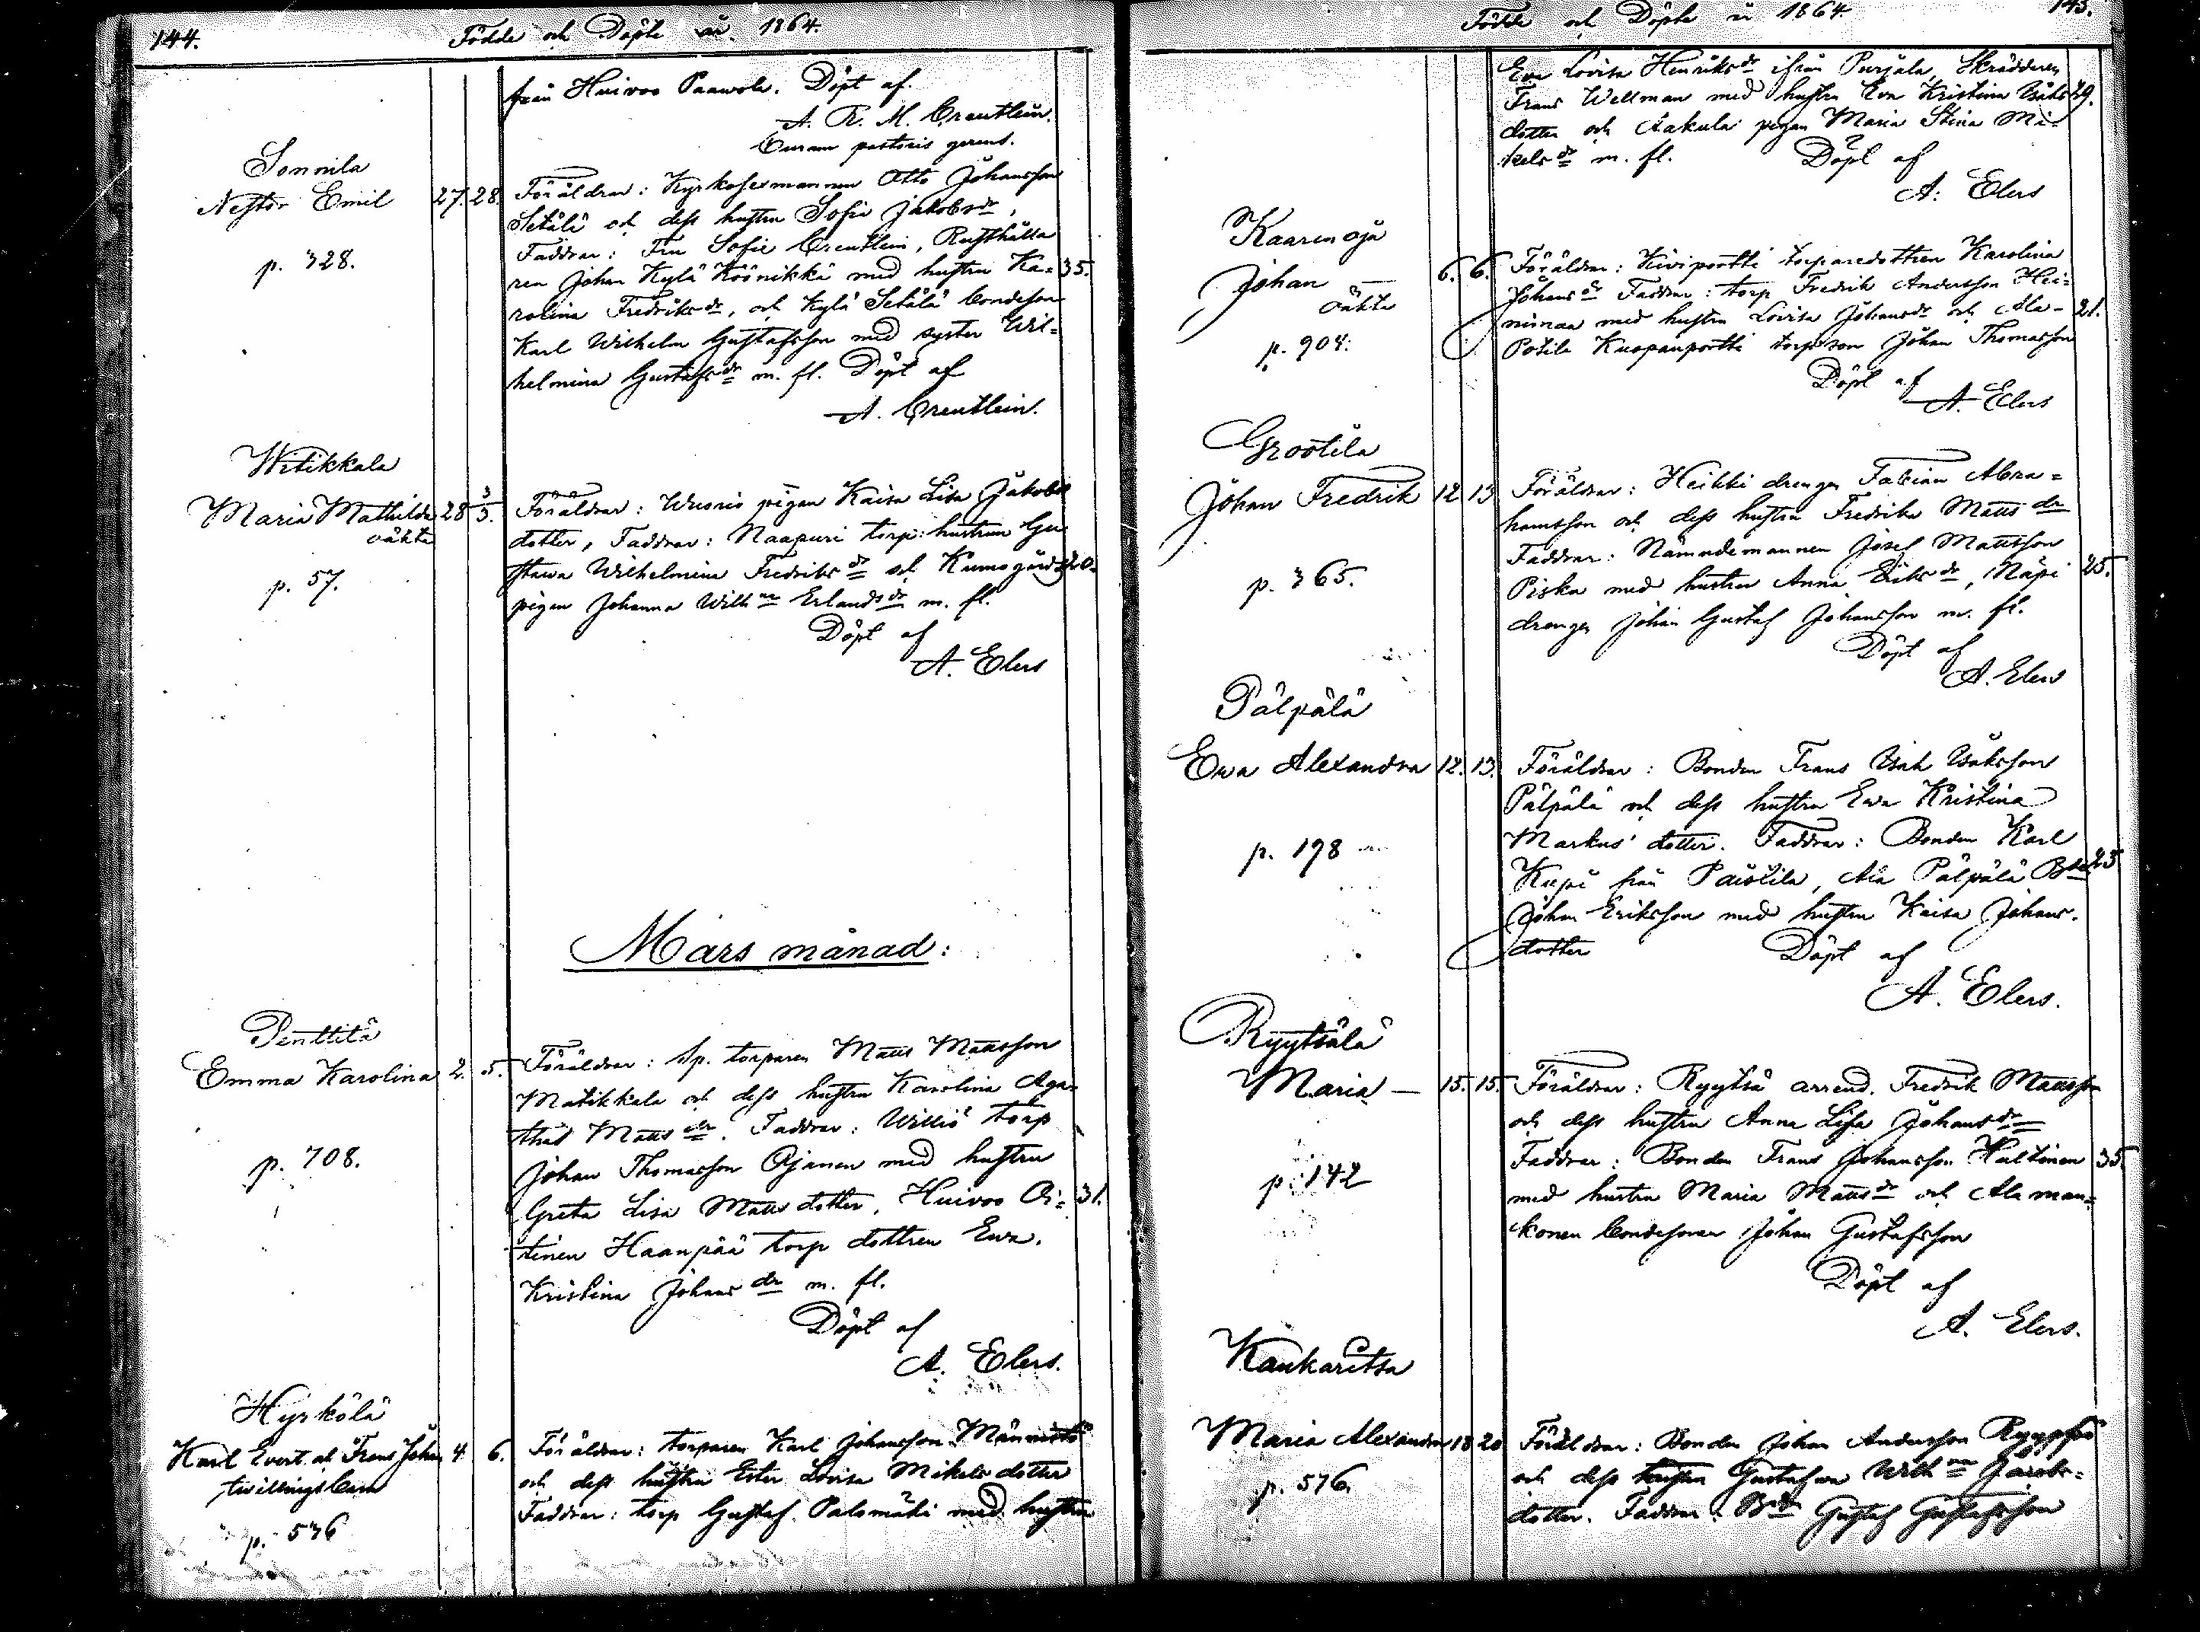 144.
Födde och Döpte år 1864.
från Huivoo Paavola. Döpt af
A. R. M. Creutlein.
Curam pastoris gerens.
Sonnila
Nestor Emil 27. 28.
p. 328.
Föräldrar: Kyrkosexmannen Otto Johansson
Setälä och dess hustru Sofia Jakobsdr,
Faddrar: Fru Sofie Creutlein, Rusthålla
ren Johan Kylä Köönikkä med hustru Ka= 35.
rolina Fredriksdr, och Kylä Setälä bondeson
Karl Wilhelm Gustafsson med syster Wil=
helmina Gustafsdr m. fl. Döpt af
A. Creutlein.
Witikkala
Maria Mathilda 28 3/3.
oäkta
p. 57.
Föräldrar: pigan Kaisa Lisa Jakobs
dotter, Faddrar: Naapuri torp: hustrun Gu
stava Wilhelmina Fredriksdr och Kumogård 20.
pigan Johanna Wilhna Erlandsdr m. fl.
Döpt af
A. Elers
Mars månad:
Penttilä
Emma Karolina 2. 5.
p. 708.
Föräldrar: Sp. torparen Matts Mattsson
Matikkala och dess hustru Karolina Aga=
tha Mattsdr. Faddrar: Williö torp
Johan Thomasson Ojanen med hustru
Greta Lisa Matts dotter, Huivoo Ri= 31.
tinen Haanpää torp dottren Eva
Kristina Johansdr m. fl.
Döpt af
A. Elers.
Hyrkölä
Karl Evert och Frans Johan 4 6.
tvillingsbarn
p. 536
Föräldrar: torparen Karl Johansson Männistö
och dess hustru Ester Lovisa Mikels dotter
Faddrar: torp Gustaf Palomäki med hustru
Födde och Döpte år 1864. 145.
Eva Lovisa Henriksdr ifrån Purjala, Skräddaren
Frans Wellman med hustru Eva Kristina Isaks 29.
dotter och Aakula pigan Maria Stina Mi=
kelsdr m. fl. Döpt af
A: Elers
Kaarenoja
Johan 6. 6.
oäkta
p. 904.
Föräldrar: Kiviportti torparedottren Karolina
Johansdr Faddrar: torp Fredrik Andersson Hei=
niinaa med hustru Lovisa Johansdr och Ala- 21.
Potila Kuopanportti torpson Johan Thomasson
Döpt af
A. Elers
Grootila
Johan Fredrik 12 13
p. 365.
Föräldrar: Heikki drengen Fabian Abra=
hamsson och dess hustru Fredrika Mattsdr
Faddrar: Nämndemannen Josef Mattsson
Piska med hustru Anna Eriksdr, Näpi 25.
drengen Johan Gustaf Johansson m. fl.
Döpt af
A. Elers
Pälpälä
Eva Alexandra 12. 13.
p. 198
Föräldrar: Bonden Frans Isak Isaksson
Pälpälä och dess hustru Eva Kristina
Markus' dotter. Faddrar: Bonden Karl
Kupi från Päiötila, Ala Pälpälä Bdn 25
Johan Eriksson med hustru Kaisa Johans
dotter Döpt af
A. Elers.
Ryytsälä
Maria — 15. 15.
p. 142
Föräldrar: Ryytsä arrend. Fredrik Mattsson
och dess hustru Anna Lisa Johansdr
Faddrar: Bonden Frans Johansson Hultinen 35.
med hustru Maria Mattsdr och Ala man=
konen bondesonen Johan Gustafsson
Döpt af
A. Elers.
Kaukaritsa
Maria Alexandra 18 20
p. 576.
Föräldrar: Bonden Johan Andersson Ryyppö
och dess hustru Gustafva Wilhna Jacobs=
dotter. Faddrar: Bdn Gustaf Gustafsson